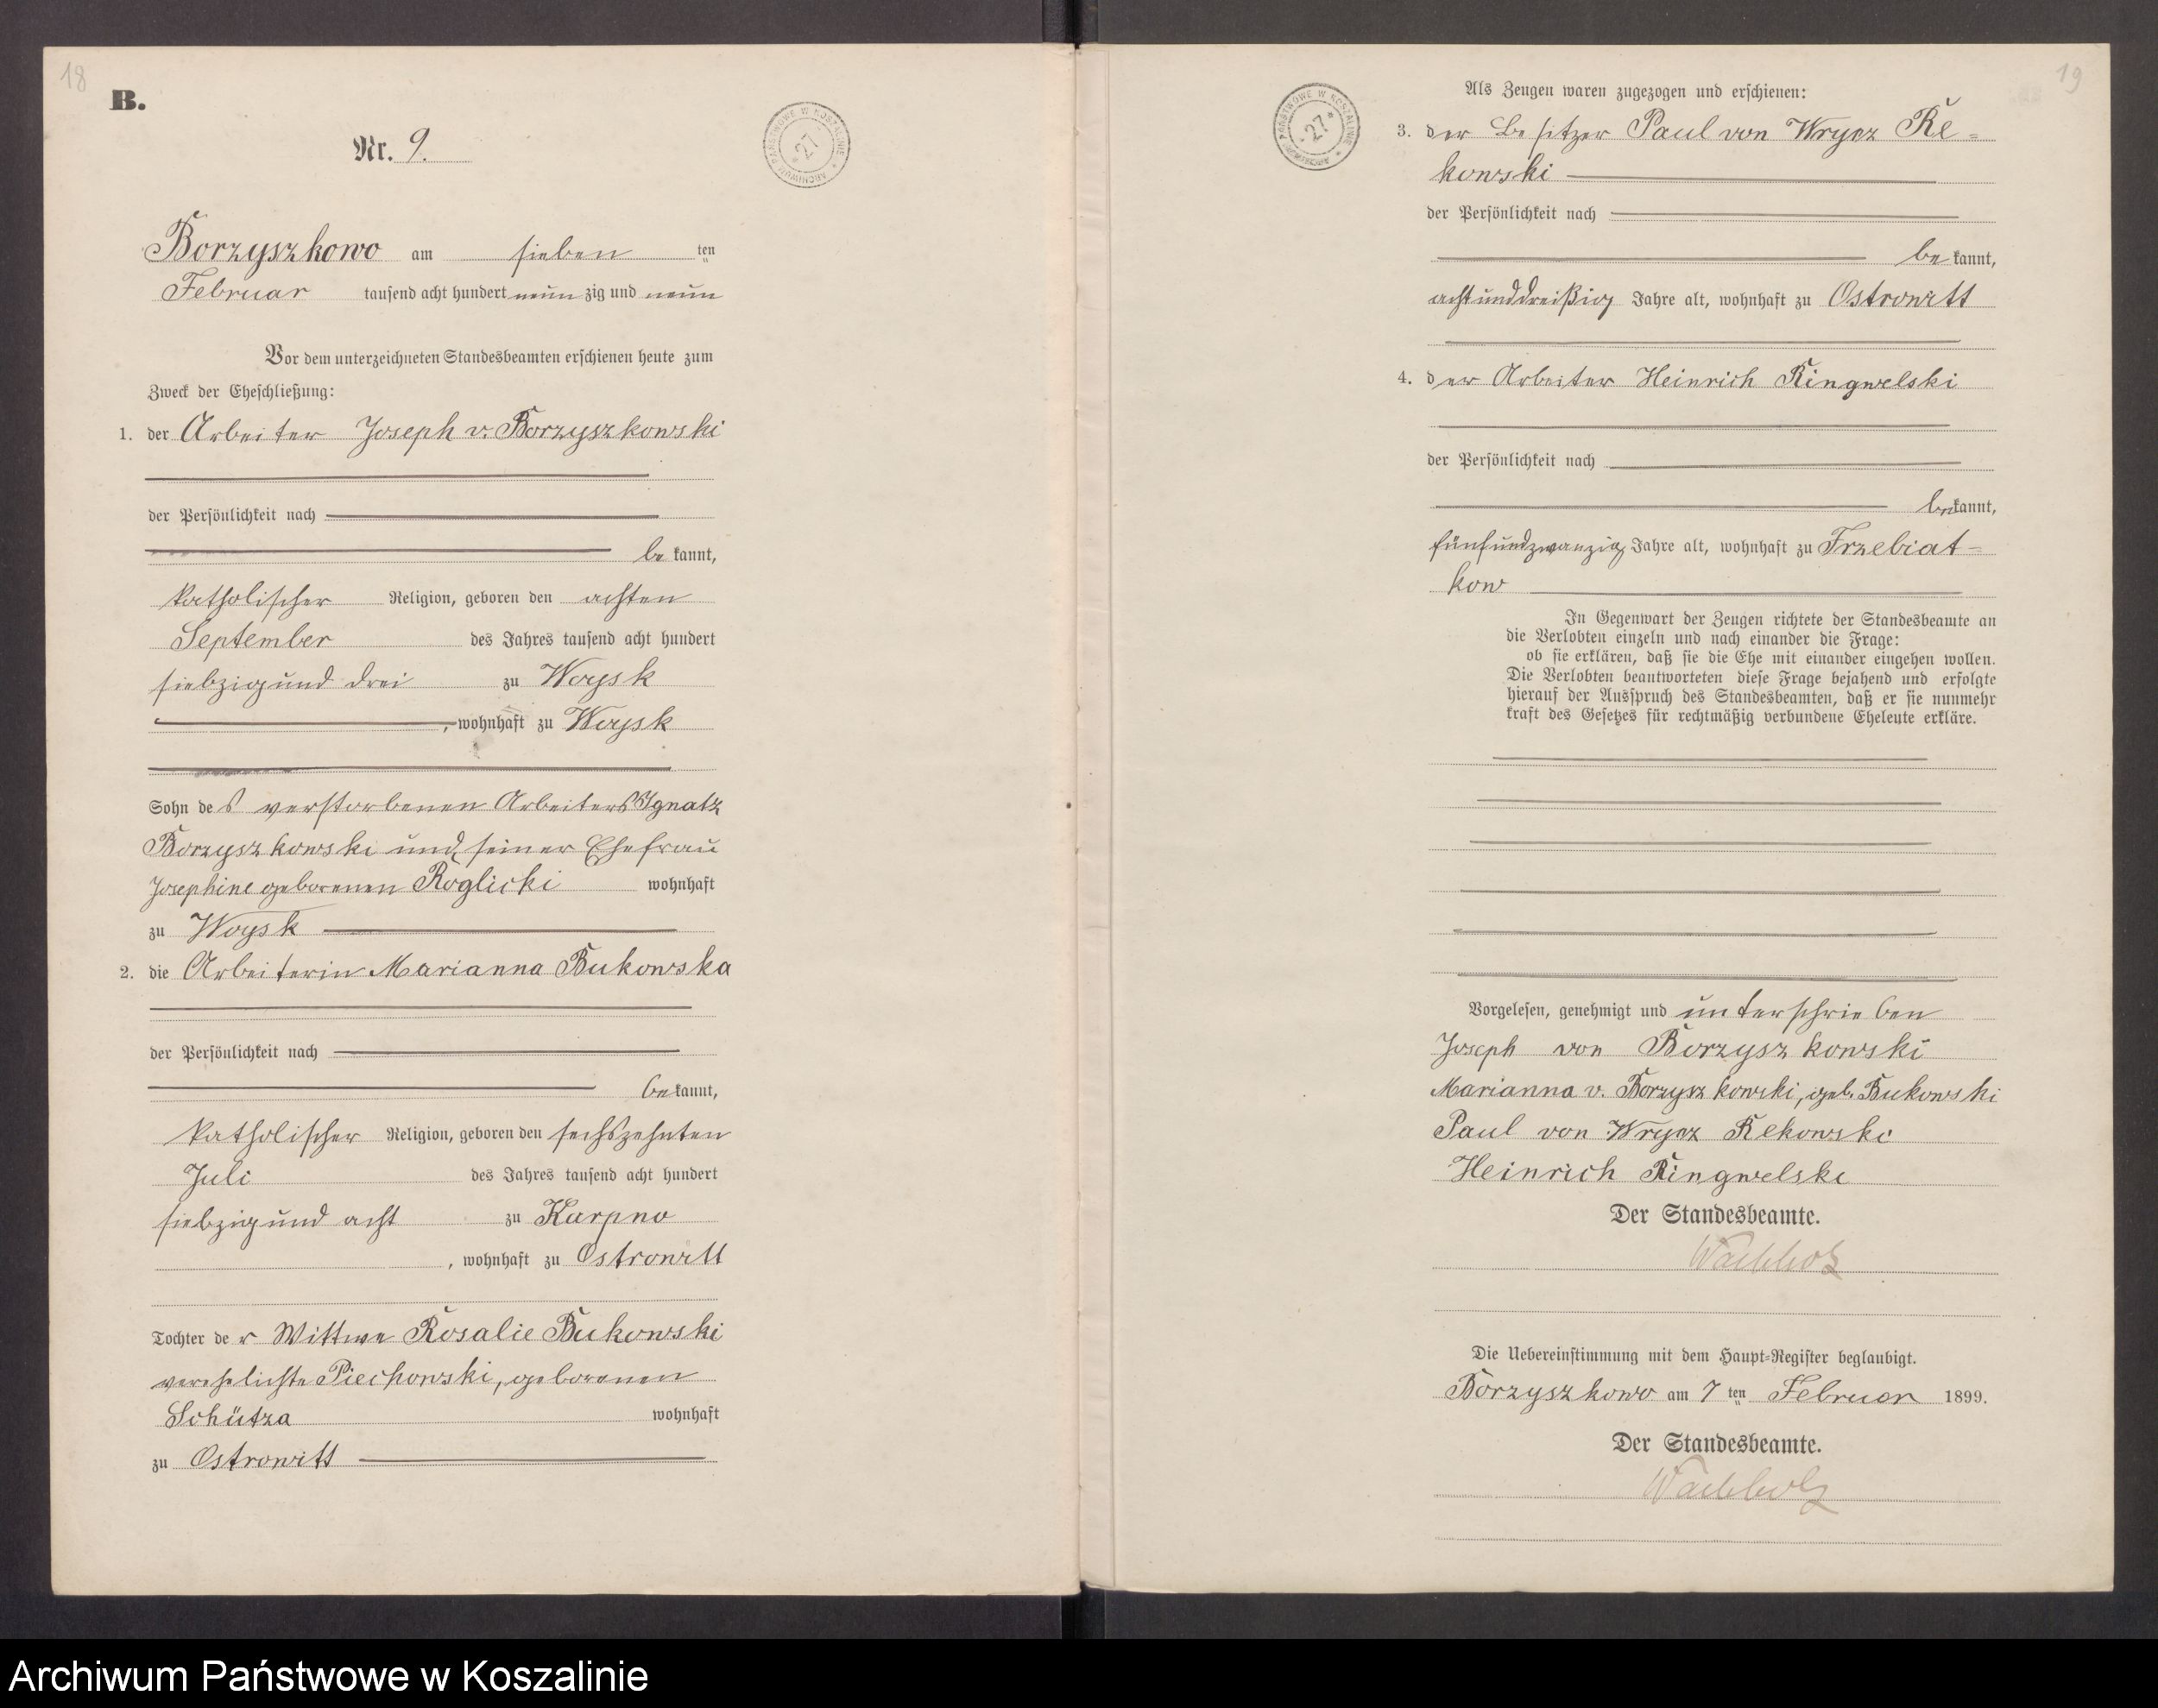 18
B.
Nr. 9.
ARCHIWUM PAŃSTWOWE W KOSZALINIE
* 27 *
Borzyszkowo am sieben ten
Februar tausend acht hundert neun zig und neun
Vor dem unterzeichneten Standesbeamten erschienen heute zum
Zweck der Eheschließung:
1. der Arbeiter Joseph v. Borzyszkowski
der Persönlichkeit nach
be kannt,
katholischer Religion, geboren den achten
September des Jahres tausend acht hundert
siebzig und drei zu Woysk
, wohnhaft zu Woysk
Sohn des verstorbenen Arbeiters Ignatz
Borzyszkowski und seiner Ehefrau
Josephine geborenen Roglicki wohnhaft
zu Woysk
2. die Arbeiterin Marianna Bukowska
der Persönlichkeit nach
be kannt,
katholischer Religion, geboren den sechszehnten
Juli des Jahres tausend acht hundert
siebzig und acht zu Karpno
, wohnhaft zu Ostrowitt
Tochter der Wittwe Rosalie Bukowski
verehelichte Piechowski, geborenen
Schütza wohnhaft
zu Ostrowitt
19
ARCHIWUM PAŃSTWOWE W KOSZALINIE
* 27 *
Als Zeugen waren zugezogen und erschienen:
3. der Besitzer Paul von Wrycz Re-
kowski
der Persönlichkeit nach
be kannt,
achtunddreißig Jahre alt, wohnhaft zu Ostrowitt
4. der Arbeiter Heinrich Ringwelski
der Persönlichkeit nach
be kannt,
fünfundzwanzig Jahre alt, wohnhaft zu Trzebiat-
kow
In Gegenwart der Zeugen richtete der Standesbeamte an
die Verlobten einzeln und nach einander die Frage:
ob sie erklären, daß sie die Ehe mit einander eingehen wollen.
Die Verlobten beantworteten diese Frage bejahend und erfolgte
hierauf der Ausspruch des Standesbeamten, daß er sie nunmehr
kraft des Gesetzes für rechtmäßig verbundene Eheleute erkläre.
Vorgelesen, genehmigt und unterschrieben
Joseph von Borzyszkowski
Marianna v. Borzyszkowski, geb. Bukowski
Paul von Wrycz Rekowski
Heinrich Ringwelski
Der Standesbeamte.
Wachholz
Die Uebereinstimmung mit dem Haupt-Register beglaubigt.
Borzyszkowo am 7 ten Februar 1899.
Der Standesbeamte.
Wachholz
Archiwum Państwowe w Koszalinie